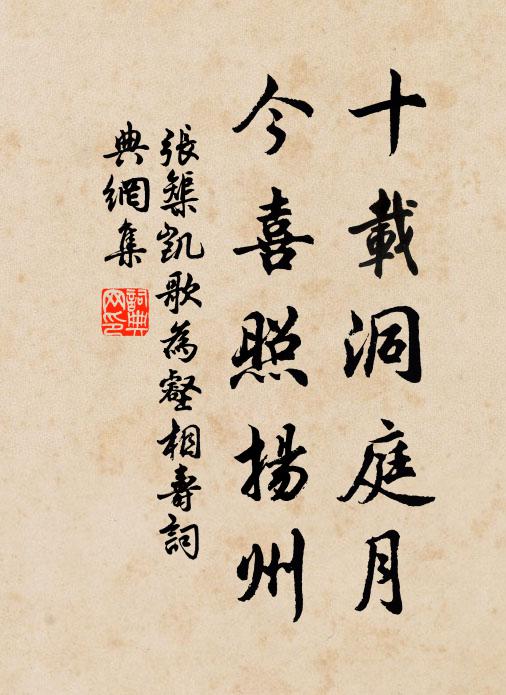 十載洞庭月
今喜照揚州
張榘凱歌為壑相壽詞
典網集
詞典網印